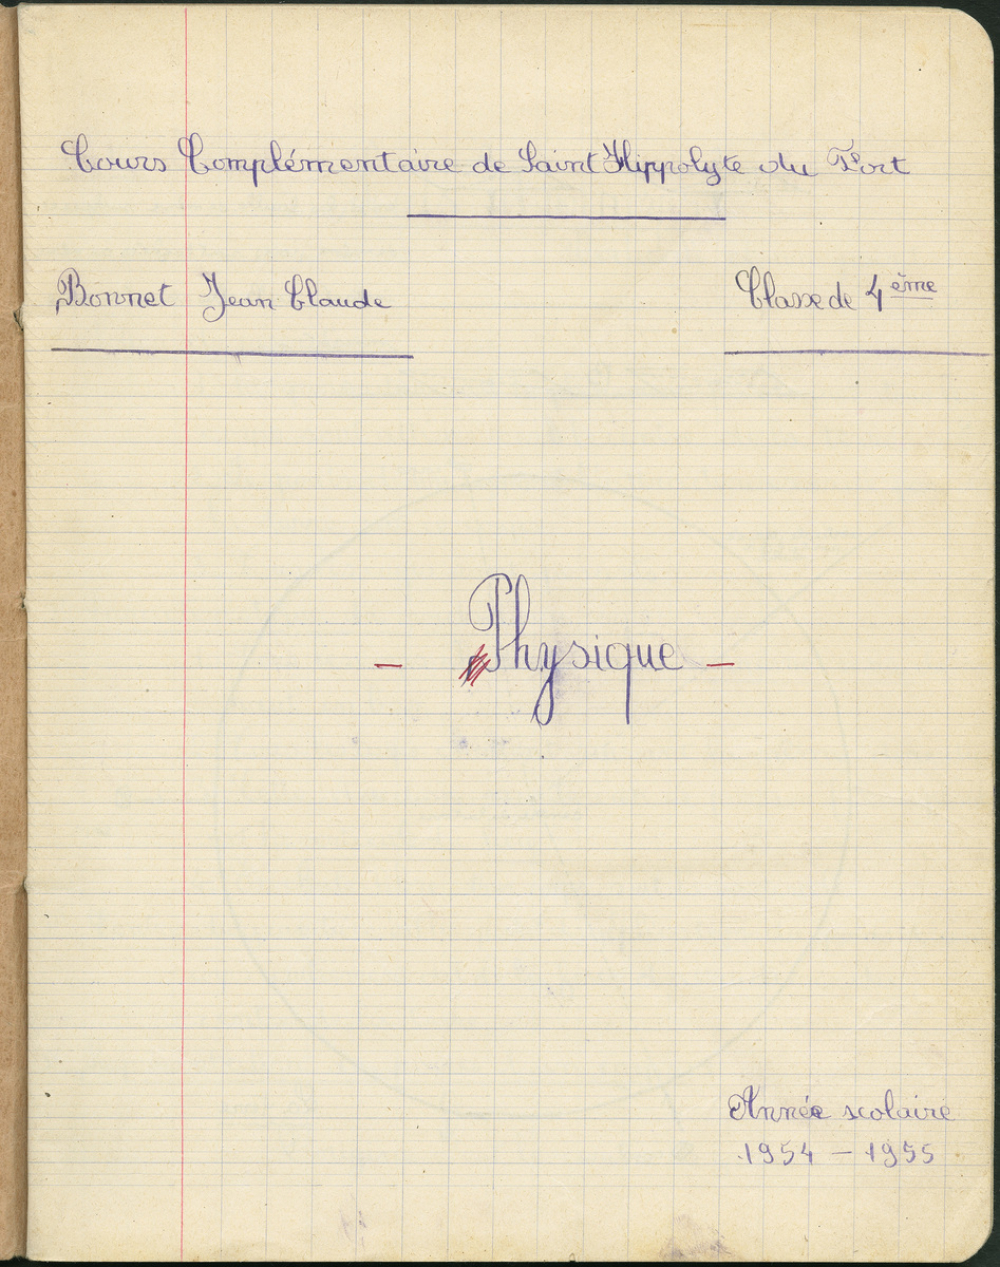 Cours Complémentaire de Saint Hippolyte du Fort
Bonnet Jean Claude
Classe de 4ème
- Physique -
Année scolaire
1954 - 1955